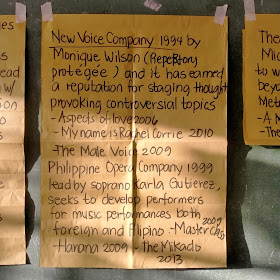 New Voice Company 1994 by
Monique Wilson (Repertory
protegee) and it has earned
a reputation for staging thought
provoking controversial topics
- Aspects of love 2006
- My name is Rachel Corrie 2010
- The Male Voice 2009
Philippine Opera Company 1999
lead by soprano Karla Gutierez,
seeks to develop performers
for music performances both
foreign and Filipino - Master Class 2009
- Harana 2009 - The Mikado
2013
The
Mic
to w
beyo
Met
- A N
- The
es
ead
w/